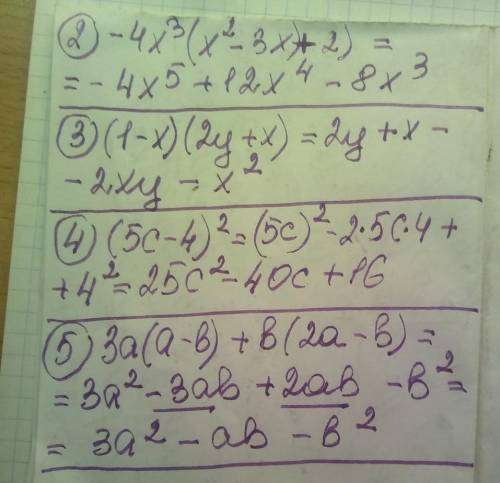 2) -4x³(x²-3x)+2) =
= -4x⁵ +12x⁴ - 8x³
3) (1-x)(2y+x) = 2y+x -
- 2xy - x²
4) (5c-4)² = (5c)² - 2·5c·4 +
+4² = 25c² - 40c + 16
5) 3a(a-b) + b(2a-b) =
= 3a² - 3ab + 2ab - b² =
= 3a² - ab - b²